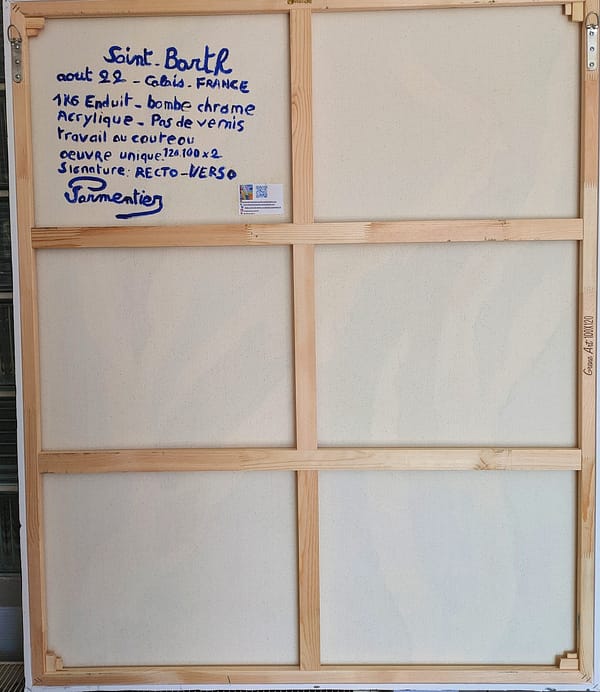 Saint-Barth
aout 22 - Calais - FRANCE
1K6 Enduit - bombe chrome
Acrylique - Pas de vernis
travail au couteau
oeuvre unique: 120.100 x 2
Signature: RECTO-VERSO
Parmentier
100X120